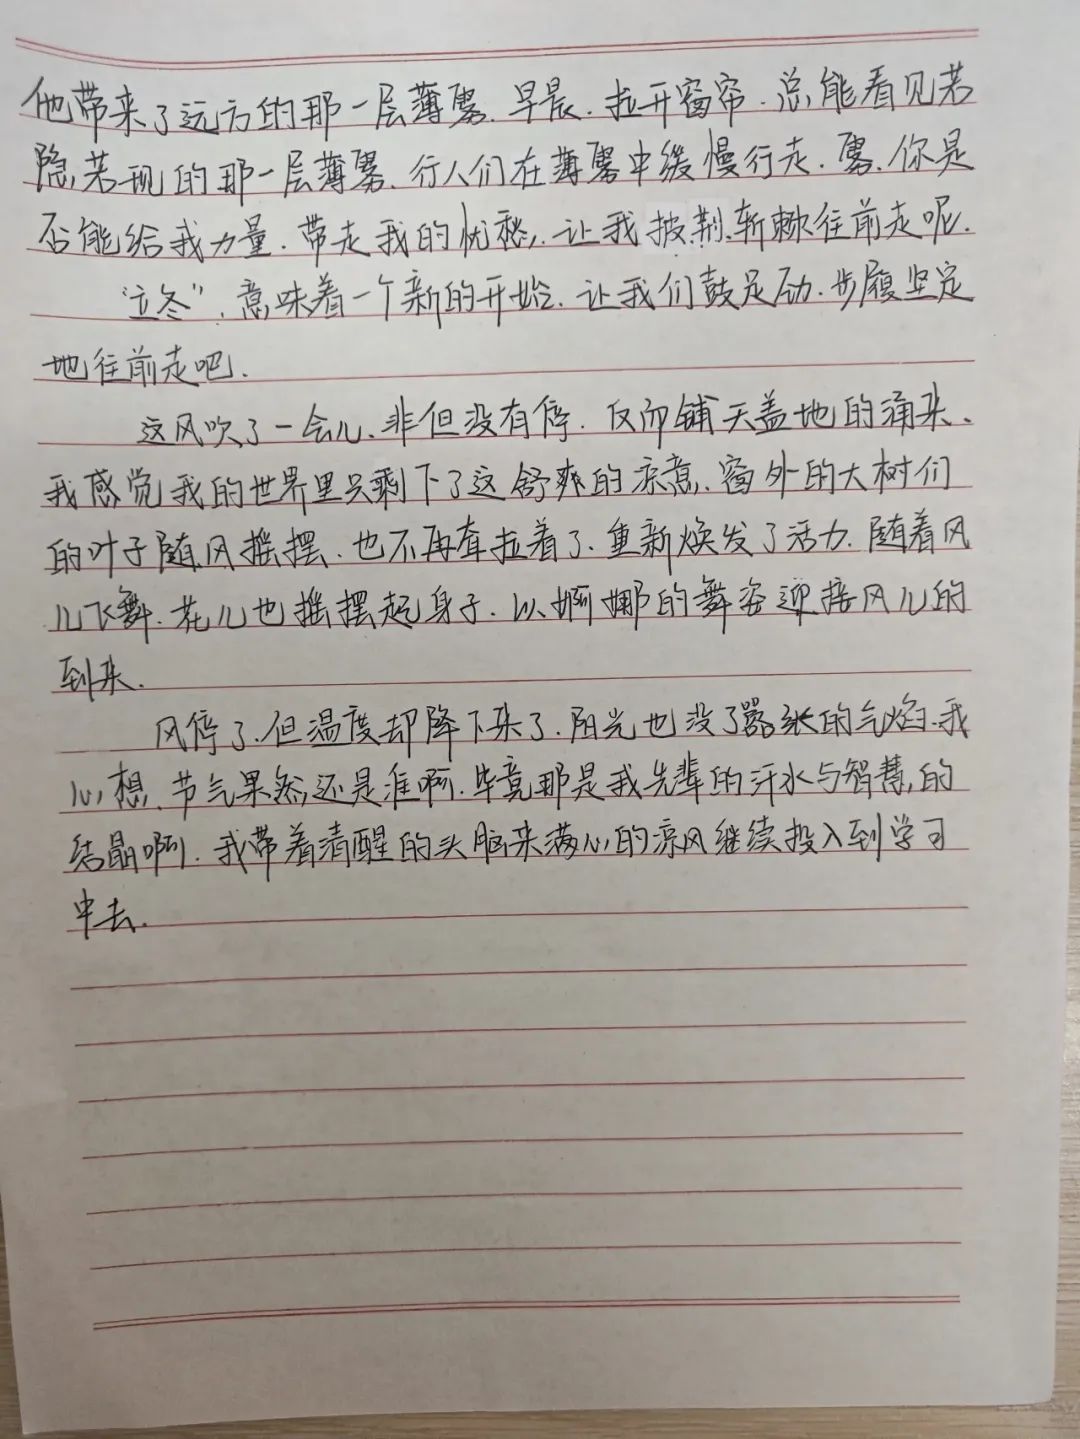 他带来了远方的那一层薄雾.早晨.拉开窗帘.总能看见若
隐若现的那一层薄雾.行人们在薄雾中缓慢行走.雾.你是
否能给我力量.带走我的忧愁,让我披荆斩棘往前走呢.
“立冬”.意味着一个新的开始.让我们鼓足劲.步履坚定
地往前走吧.
这风吹了一会儿、非但没有停.反而铺天盖地的涌来、
我感觉我的世界里只剩下了这舒爽的凉意.窗外的大树们
的叶子随风摇摆.也不再耷拉着了.重新焕发了活力.随着风
儿飞舞.花儿也摇摆起身子.以婀娜的舞姿迎接风儿的
到来.
风停了.但温度却降下来了.阳光也没了嚣张的气焰.我
心想.节气果然还是准啊.毕竟那是我先辈的汗水与智慧的
结晶啊.我带着清醒的头脑来满心的凉风继续投入到学习
中去.